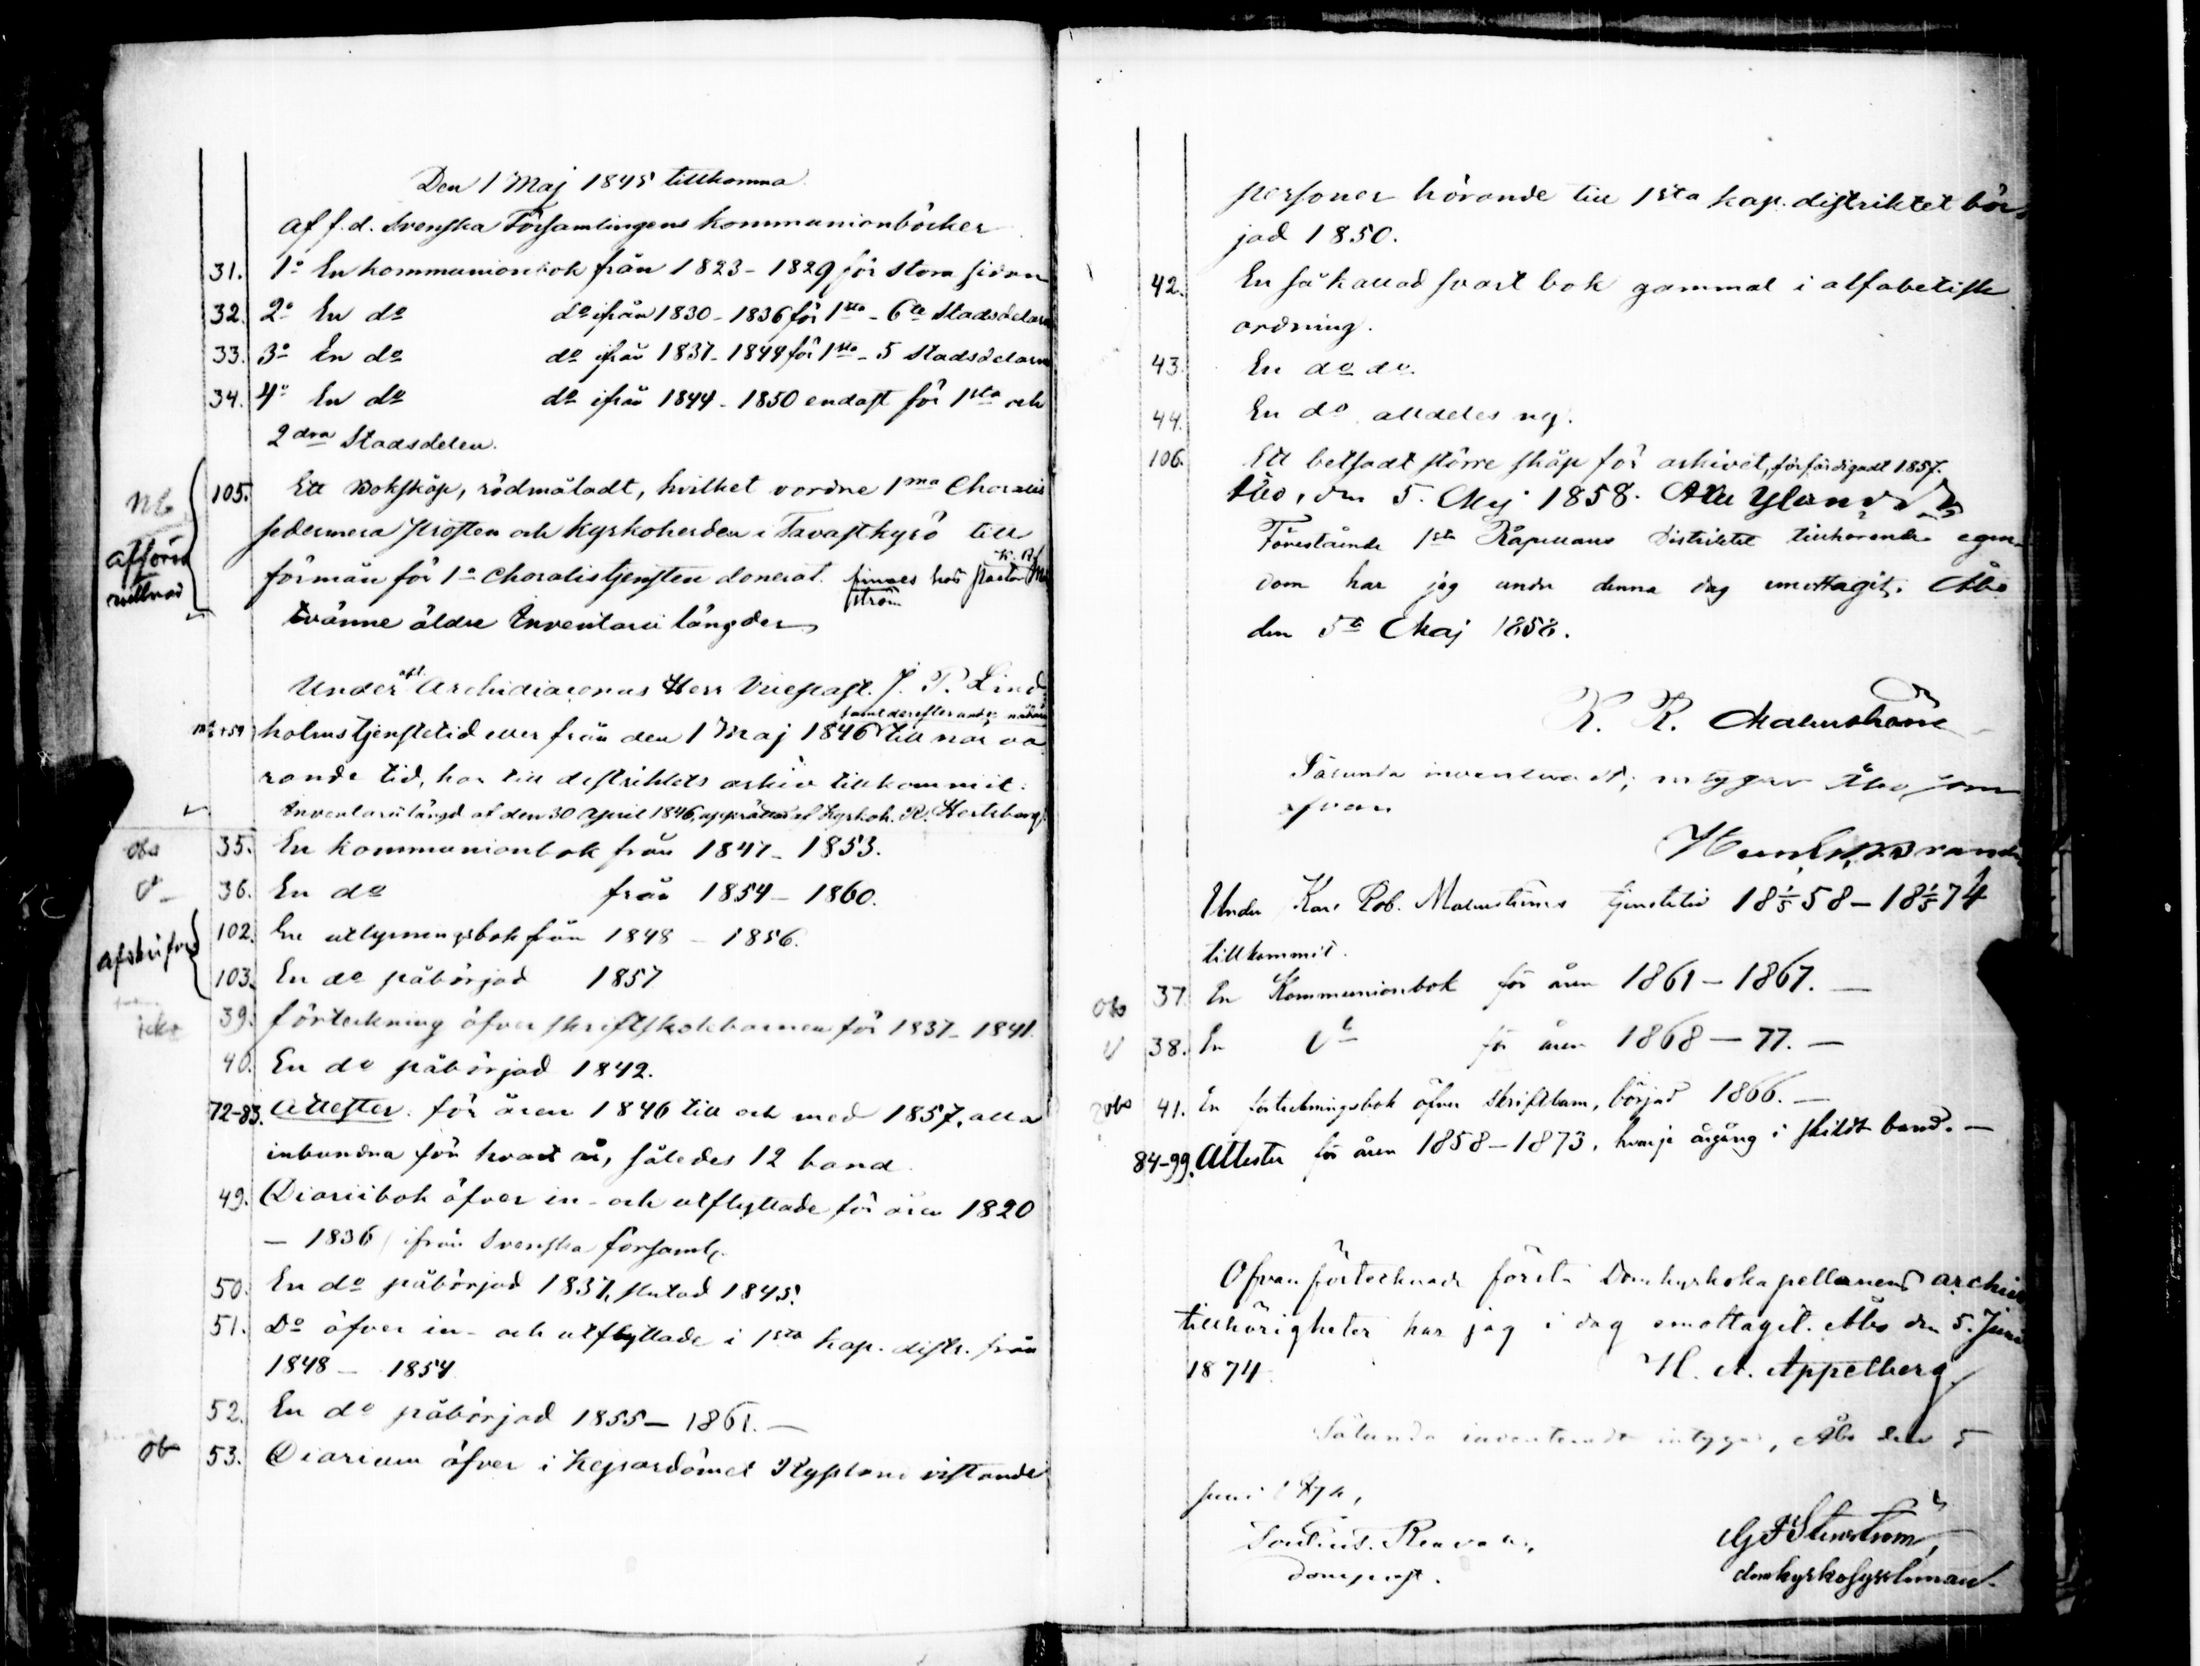 Den 1 Maj 1845 tillkomna
af f.d. Svenska Församlingens kommunionböcker
31. 1º En kommunionbok från 1823-1829 för stora sidan
32. 2º En dº dº ifrån 1830-1836 för 1sta-6te Stadsdelarn
33. 3º En dº dº ifrån 1837-1844 för 1sta-5 Stadsdelarn
34. 4º En dº dº ifrån 1844-1850 endast för 1sta och
2dra Stadsdelen.
NB
afförd
105. Ett Bokskåp, rödmåladt, hvilket vordne 1ma Choralis
sedermera Prosten och Kyrkoherden i Tavastkyrö till
förmån för 1a Choralistjensten donerat. finnes hos Pastor
ström
tvänne äldre Inventarii längder
Under Archidiaconus Herr Vicepast. J. P. Lind
samt derefter under
holms tjenstetid eller från den 1 Maj 1846 till när va
rande tid, har till distriktets arkiv tillkommit:
Inventarii längd af den 30 April 1846, upprättad af Kyrkoh. R. Hertzberg
obs 35. En kommunionbok från 1847-1853.
36. En dº från 1854-1860.
afskrifvas
102. En utlysningsbok från 1848-1856.
103. En dº påbörjad 1857
icke 39. förteckning öfver skriftskolebarnen för 1837-1841.
40. En dº påbörjad 1842.
72-83. Attester för åren 1846 till och med 1857, alla
inbundna för hvart år, således 12 band.
49. Diariibok öfver in- och utflyttade för åren 1820
- 1836 ifrån Svenska församl.
50. En dº påbörjad 1837, slutad 1845.
51. Dº öfver in- och utflyttade i 1sta kap. distr. från
1848-1854
52. En dº påbörjad 1855-1861.
obs 53. Diarium öfver i Kejsardömet Ryssland vistande
personer hörande till 1sta kap. distriktet bör
jad 1850.
42. En så kallad svart bok gammal i alfabetisk
ordning.
43. En dº dº.
44. En dº alldeles ny.
106. Ett betsadt större skåp för arkivet, förfärdigadt 1857.
Åbo, den 5. Maj 1858.
Förestående 1sta Kapellans Distriktet tillhörande egen
dom har jag under denna dag emottagit. Åbo
den 5te Maj 1858.
K. R. Malmström
Sålunda inventeradt, intygar Åbo, som
ofvan
Under Karl Rob. Malmströms tjenstetid 18 1/5 58 - 18 1/5 74
tillkommit.
obs 37. En Kommunionbok för åren 1861-1867. -
38. En dº för åren 1868-77. -
obs 41. En förteckningsbok öfver Skriftbarn, börjad 1866. -
84-99. Attester för åren 1858-1873, hvarje årgång i skildt band. -
Ofvanförtecknade första Domkyrkokapellanens archiv
tillhörigheter har jag i dag emottagit. Åbo den 5. Juni
1874. H. A. Appelberg
Sålunda inventeradt intygar, Åbo den 5
Juni 1874,
domprost.
domkyrkosyssloman.